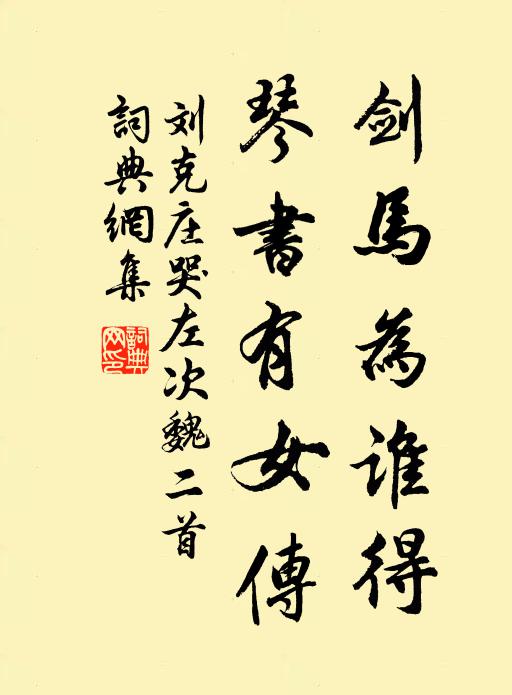 剑馬為谁得
琴書有女傳
刘克庄哭左次魏二首
詞典網集
詞典网印